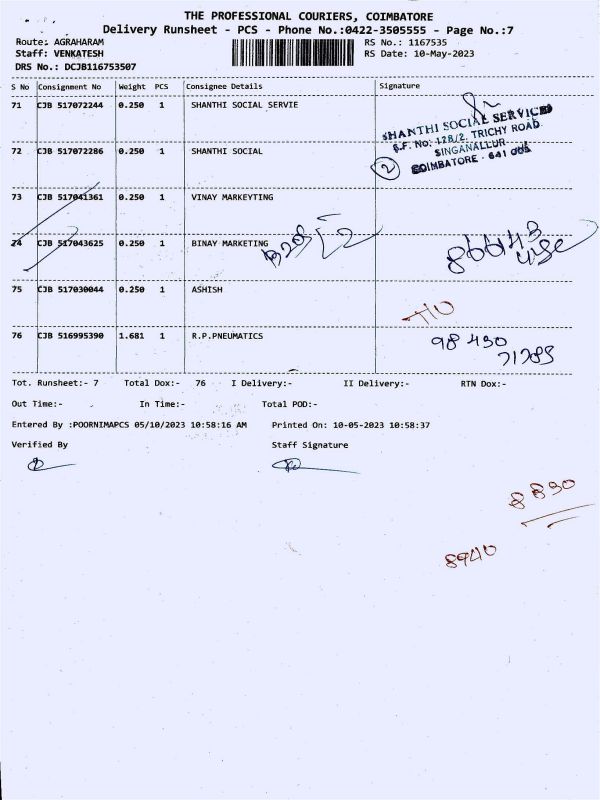 THE PROFESSIONAL COURIERS, COIMBATORE
Delivery Runsheet - PCS - Phone No.:0422-3505555 - Page No.:7
Route: AGRAHARAM
RS No.: 1167535
Staff: VENKATESH
RS Date: 10-May-2023
DRS No.: DCJB116753507
S No Consignment No Weight PCS Consignee Details Signature
71 CJB 517072244 0.250 1 SHANTHI SOCIAL SERVIE
SHANTHI SOCIAL SERVICES
S.F. No: 128/2, TRICHY ROAD
SINGANALLUR
COIMBATORE - 641 005
72 CJB 517072286 0.250 1 SHANTHI SOCIAL
2
73 CJB 517041361 0.250 1 VINAY MARKEYTING
74 CJB 517043625 0.250 1 BINAY MARKETING
75 CJB 517030044 0.250 1 ASHISH
76 CJB 516995390 1.681 1 R.P.PNEUMATICS
98 430
71785
Tot. Runsheet:- 7 Total Dox:- 76 I Delivery:- II Delivery:- RTN Dox:-
Out Time:- In Time:- Total POD:-
Entered By :POORNIMAPCS 05/10/2023 10:58:16 AM Printed On: 10-05-2023 10:58:37
Verified By Staff Signature
8890
8940